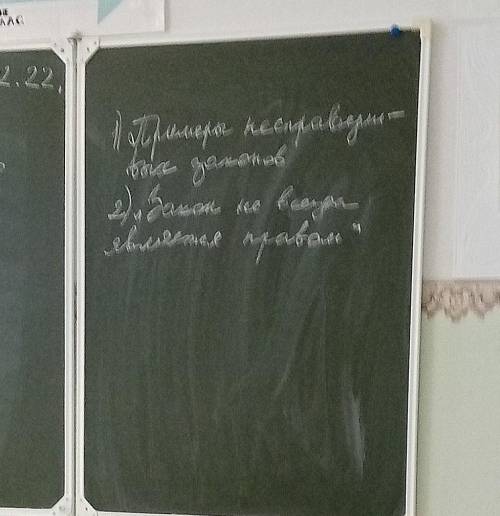 ЛАС
2.22.
1) „Примеры несправедли=
вых законов
2) „Закон не всегда
является правом"